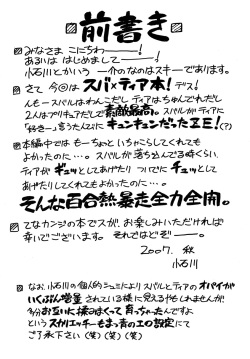 前書き
みなさま こにちわーーー！
あるいは はじめましてーーー！
小石川とかいう 一介のなのはスキーであります。
さて 今回は スバ×ティア本！デス！
んもースバルはわんこだし ティアはちゅんでれだし
2人はプリキュアだしで素敵最高。スバルがティアに
「好きー」言うたんびに キュンキュンだったZE！(？)
本編中では もーちょっといちゃこらしてくれても
よかったのに…。スバルが落ち込んでる時くらい、
ティアが ギュッとして あげたり つでに ヂュッとして
あげたりしてくれてもよかったのに…。
そんな百合熱暴走全力全開。
てなカンジの本でスが、お楽しみいただければ
幸いでございます。それではどぞー。
2007. 秋
小石川
なお、小石川の個人的シュミによりスバルとティアのオパイが
いくぶん増量 されている様に見えるやもしれませんが
多分お互いに揉みまくって育っちゃたんですよ
というスカリエッチーもまっ青のエロ設定にて
ご了承下さい (笑) (笑) (笑)